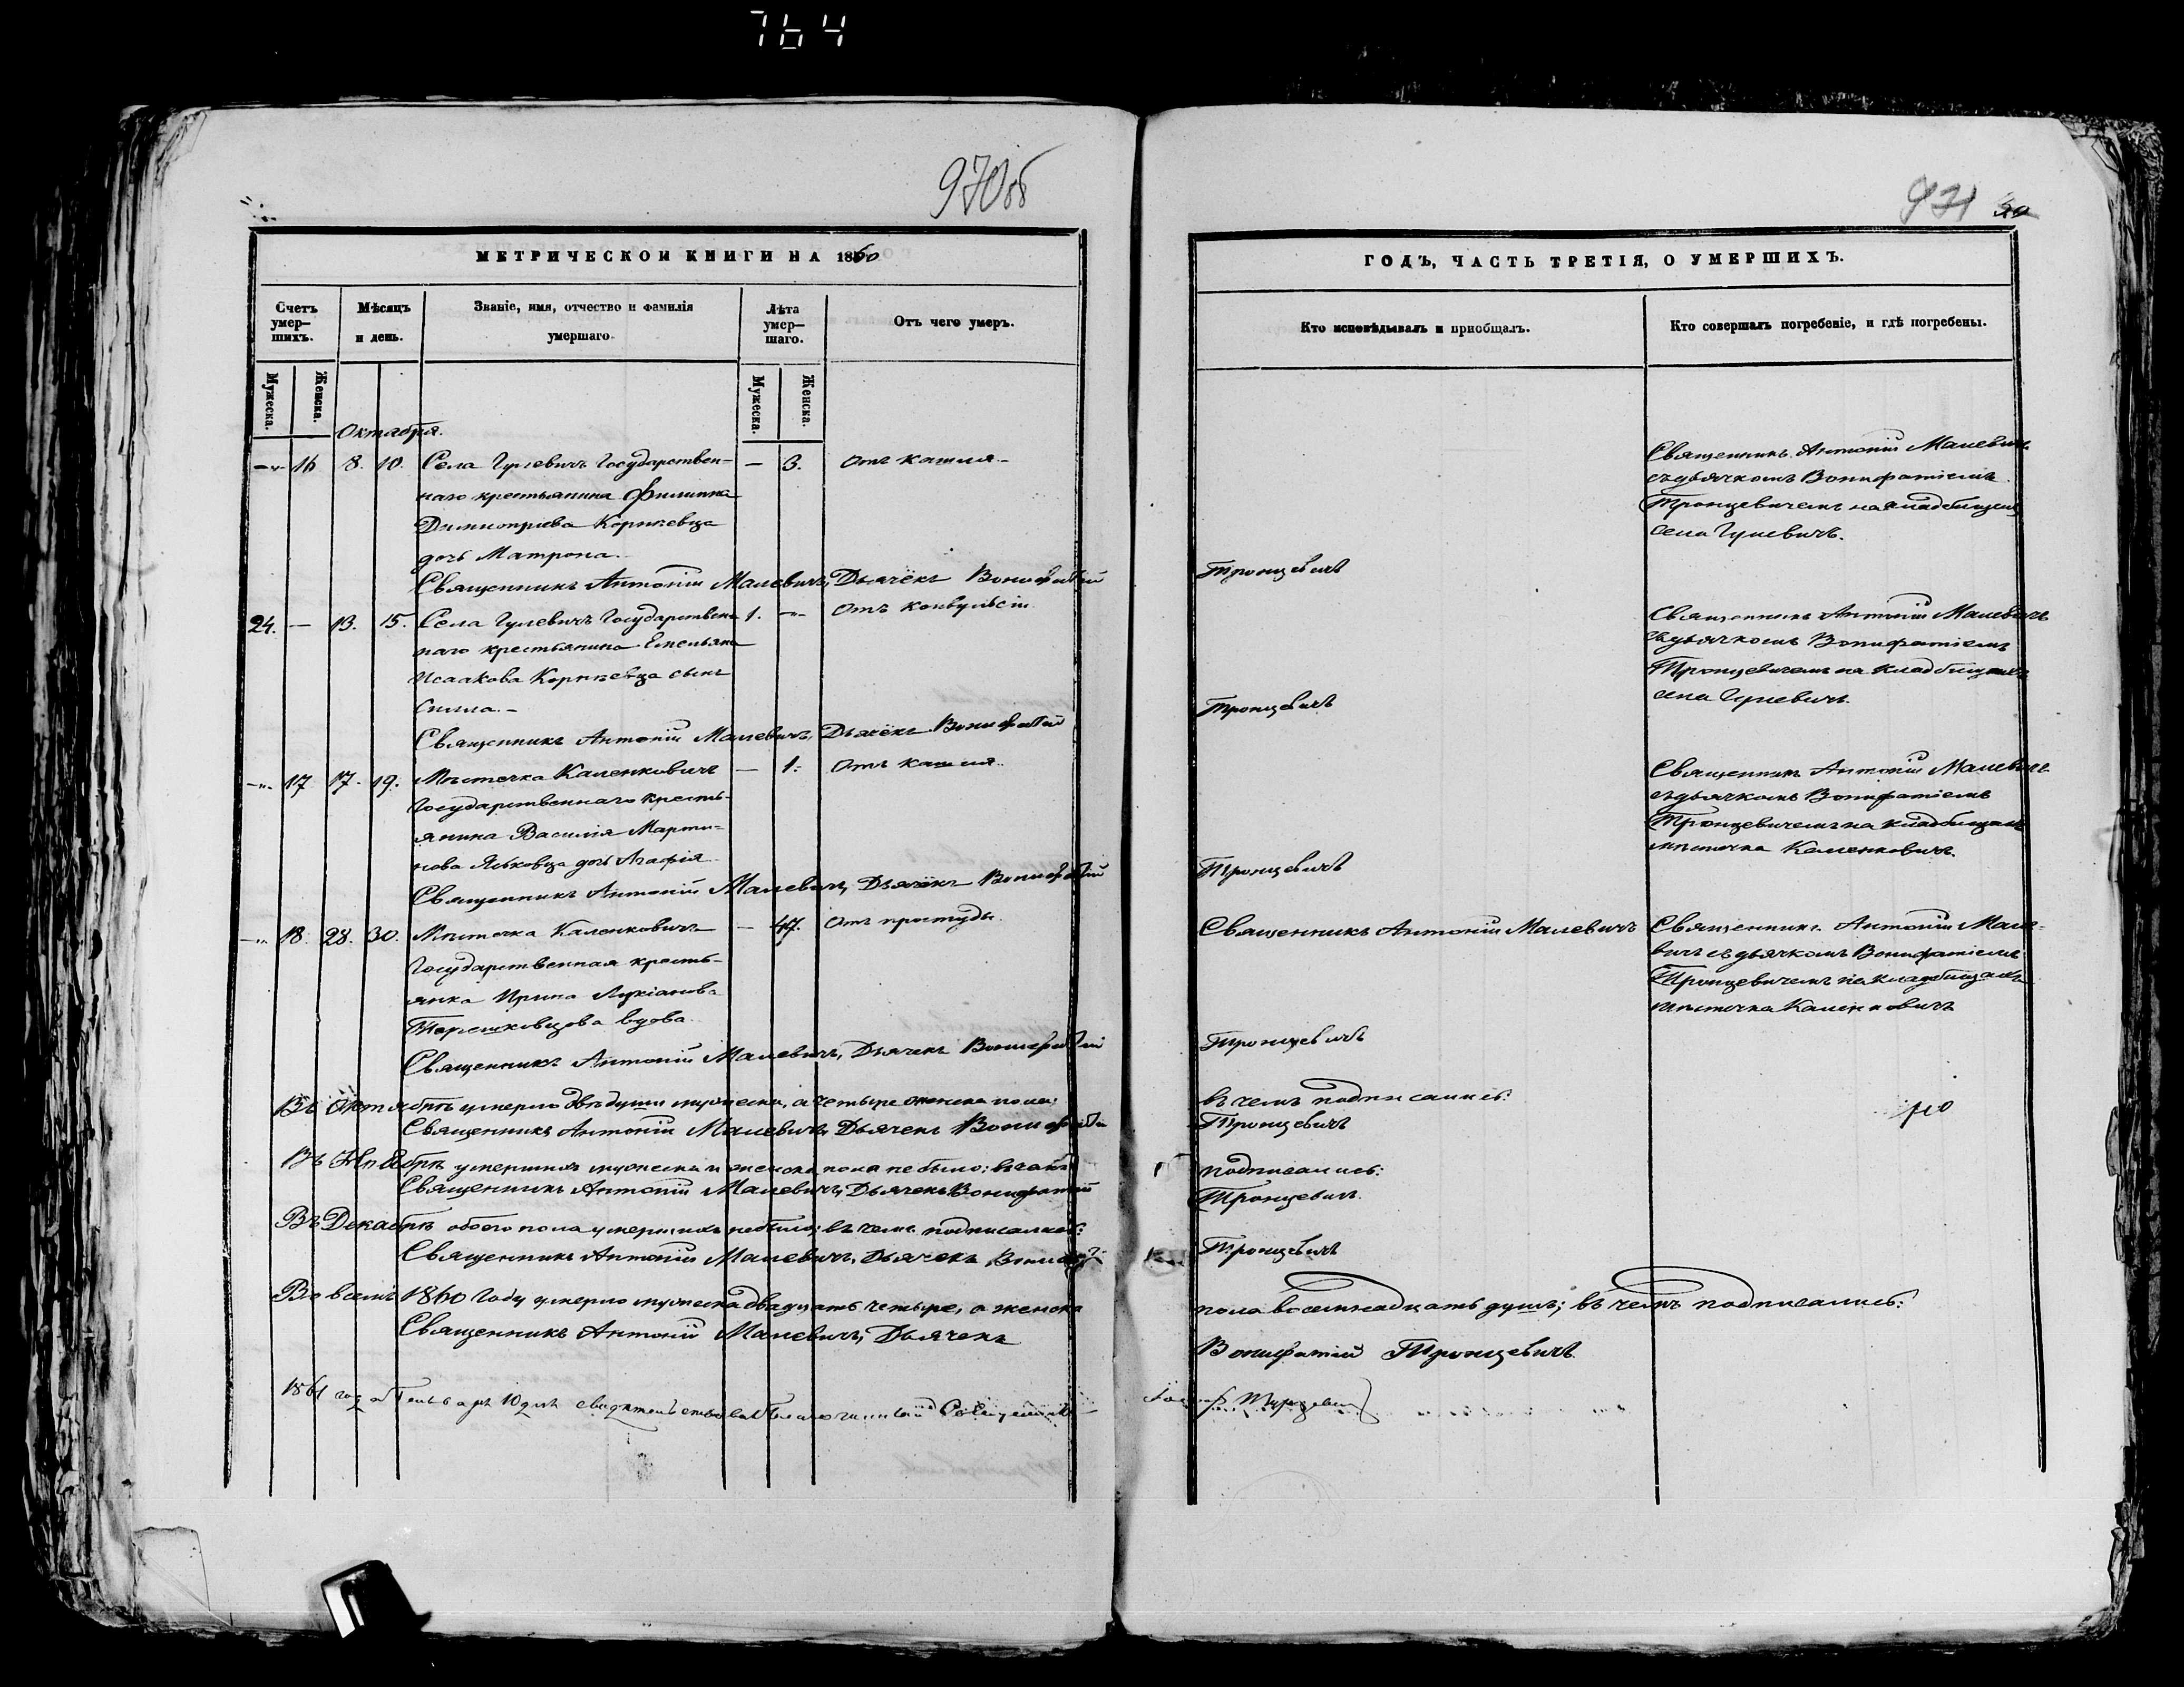 764
970об
971 50
МЕТРИЧЕСКОЙ КНИГИ НА 1860
ГОДЪ, ЧАСТЬ ТРЕТІЯ, О УМЕРШИХЪ.
Счетъ умер-шихъ.
Мѣсяцъ и день.
Званіе, имя, отчество и фамилія умершаго.
Лѣта умер-шаго.
Отъ чего умеръ.
Кто исповѣдывалъ и приобщалъ.
Кто совершалъ погребеніе, и гдѣ погребены.
Мужеска.
Женска.
Мужеска.
Женска.
Октября.
16 8. 10. Села Гулевичъ Государствен- — 3. Отъ кашля.
наго крестьянина Филиппа
Димитріева Корнѣевца
дочь Матрона.
Священникъ Антоній Малевичъ
съ дьячкомъ Вонифатіемъ
Тронцевичемъ на кладбищѣ
села Гулевичъ.
Священникъ Антоній Малевичъ, Дьячёкъ Вонифатій Тронцевичъ
24. — 13. 15. Села Гулевичъ Государствен 1. Отъ конвульсіи
наго крестьянина Емельяна
Исаакова Корнѣевца сынъ
Священникъ Антоній Малевичъ
съ дьячкомъ Вонифатіемъ
Тронцевичемъ на кладбищахъ
села Гулевичъ.
Священникъ Антоній Малевичъ, Дьячёкъ Вонифатій Тронцевичъ
17 17. 19. Мѣстечка Каленковичъ — 1. Отъ кашля.
Государственнаго кресть-
янина Василія Марти-
нова Яськовца дочь Агафія
Священникъ Антоній Малевичъ
съ дьячкомъ Вонифатіемъ
Тронцевичемъ на кладбищахъ
мѣстечка Каленковичъ.
Священникъ Антоній Малевичъ, Дьячёкъ Вонифатій Тронцевичъ
18. 28. 30. Мѣстечка Каленковичъ — 47. Отъ простуды.
Государственная кресть-
янка Ирина Лукіанова
Терешковцова вдова.
Священникъ Антоній Малевичъ
Священникъ Антоній Мале-
вичъ съ дьячкомъ Вонифатіемъ
Тронцевичемъ на кладбищахъ
мѣстечка Каленковичъ
Священникъ Антоній Малевичъ, Дьячекъ Вонифатій Тронцевичъ
Въ Октябрѣ умерло двѣ души мужеска, а четыре женска пола; въ чемъ подписались:
Священникъ Антоній Малевичъ, Дьячекъ Вонифатій Тронцевичъ
Въ Ноябрѣ умершихъ мужеска и женска пола не было; въ чемъ подписались:
Священникъ Антоній Малевичъ, Дьячекъ Вонифатій Тронцевичъ.
Въ Декабрѣ обоего пола умершихъ не было; въ чемъ подписались:
Священникъ Антоній Малевичъ, Дьячекъ Вонифатій Тронцевичъ
Во всемъ 1860 году умерло мужеска двадцать четыре, а женска пола восемнадцать душъ; въ чемъ подписались:
Священникъ Антоній Малевичъ, Дьячекъ Вонифатій Тронцевичъ.
1861 года Генваря 10 дня свидѣтельствовалъ Благочинный Священникъ